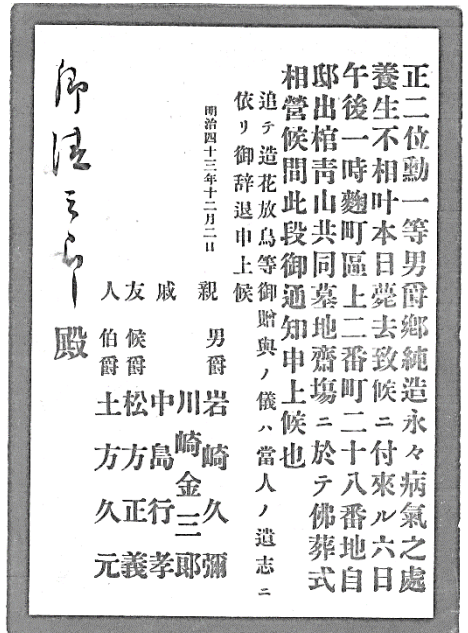 正二位勳一等男爵鄉純造永々病氣之處
養生不相叶本日薨去致候ニ付來ル六日
午後一時麴町區上二番町二十八番地自
邸出棺靑山共同墓地齋場ニ於テ佛葬式
相營候間此段御通知申上候也
追テ造花放鳥等御贈與ノ儀ハ當人ノ遺志ニ
依リ御辞退申上候
明治四十三年十二月二日
親 男爵 岩崎久彌
川崎金三郎
戚 中島行孝
友 候爵 松方正義
人 伯爵 土方久元
殿